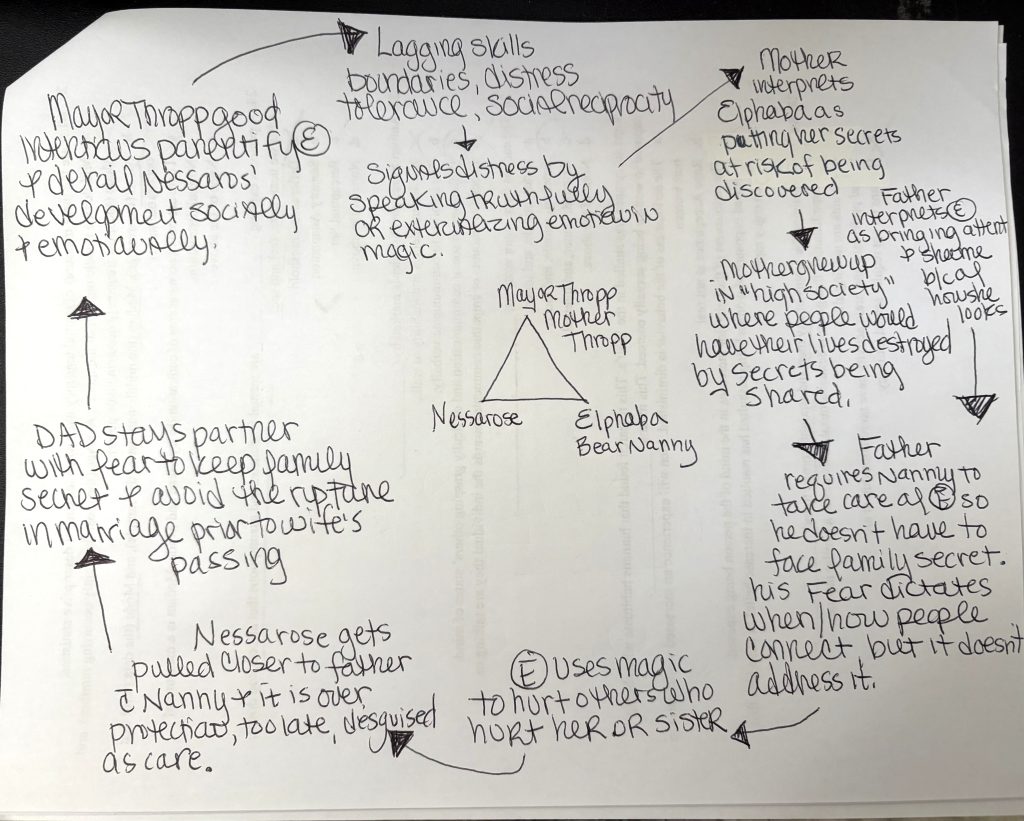 Lagging skills
boundaries, distress
tolerance, social reciprocity
Signals distress by
speaking truthfully
or externalizing emotion in
magic.
Mother
interprets
Elphaba as
putting her secrets
at risk of being
discovered
Father
interprets Ⓔ
as bringing attent
+ shame
b/c of
how she
looks
Mother grew up
in "high society"
where people would
have their lives destroyed
by secrets being
shared.
Father
requires Nanny to
take care of Ⓔ so
he doesn't have to
face family secret.
his Fear dictates
when/how people
connect, but it doesn't
address it.
Ⓔ uses magic
to hurt others who
hurt her or sister
Nessarose gets
pulled closer to father
c̄ Nanny + it is over
protection, too late, disguised
as care.
DAD stays partner
with fear to keep family
secret + avoid the rupture
in marriage prior to wife's
passing
Mayor Thropp good
intentions parentify Ⓔ
+ derail Nessaros'
development socially
+ emotionally.
Mayor Thropp
Mother
Thropp
Nessarose
Elphaba
Bear Nanny